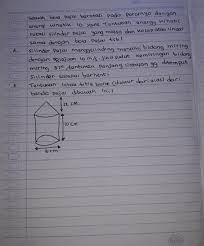 Sebuah bola pejal berotasi pada porosnya dengan
energi kinetik 10 Joule. Tentukan energi kinetik
silinder pejal yang massa dan kecepatan
sama dengan bola pejal tsb!
A. Silinder Pejal menggelinding menaiki bidang miring
dengan kecepatan 10 m/s. Jika sudut kemiringan bidang
miring 37° tentukan panjang lintasan yg ditempuh
Silinder sampai berhenti
B. Tentukan letak titik berat (diukur dari alas) dari
benda pejal dibawah ini!
12 cm
10 cm
6 cm